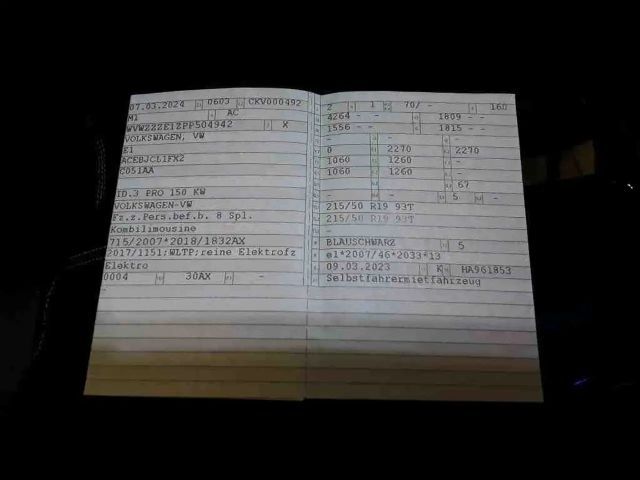 07.03.2024 0603 CKV000492
M1 AC
WVWZZZE1ZPP504942 X
VOLKSWAGEN, VW
E1
ACEBJCL1FX2
C051AA
ID.3 PRO 150 KW
VOLKSWAGEN-VW
Fz.z.Pers.bef.b. 8 Spl.
Kombilimousine
715/2007*2018/1832AX
2017/1151;WLTP;reine Elektrofz
Elektro
0004 30AX -
-
2 1 70/ - 160
4264 - - 1809 - -
1556 - - 1815 - -
- - - -
0 2270 2270
1060 1260 -
1060 1260 -
- - 67
- - 5 -
215/50 R19 93T
215/50 R19 93T
-
BLAUSCHWARZ 5
e1*2007/46*2033*13
09.03.2023 K HA961853
Selbstfahrermietfahrzeug